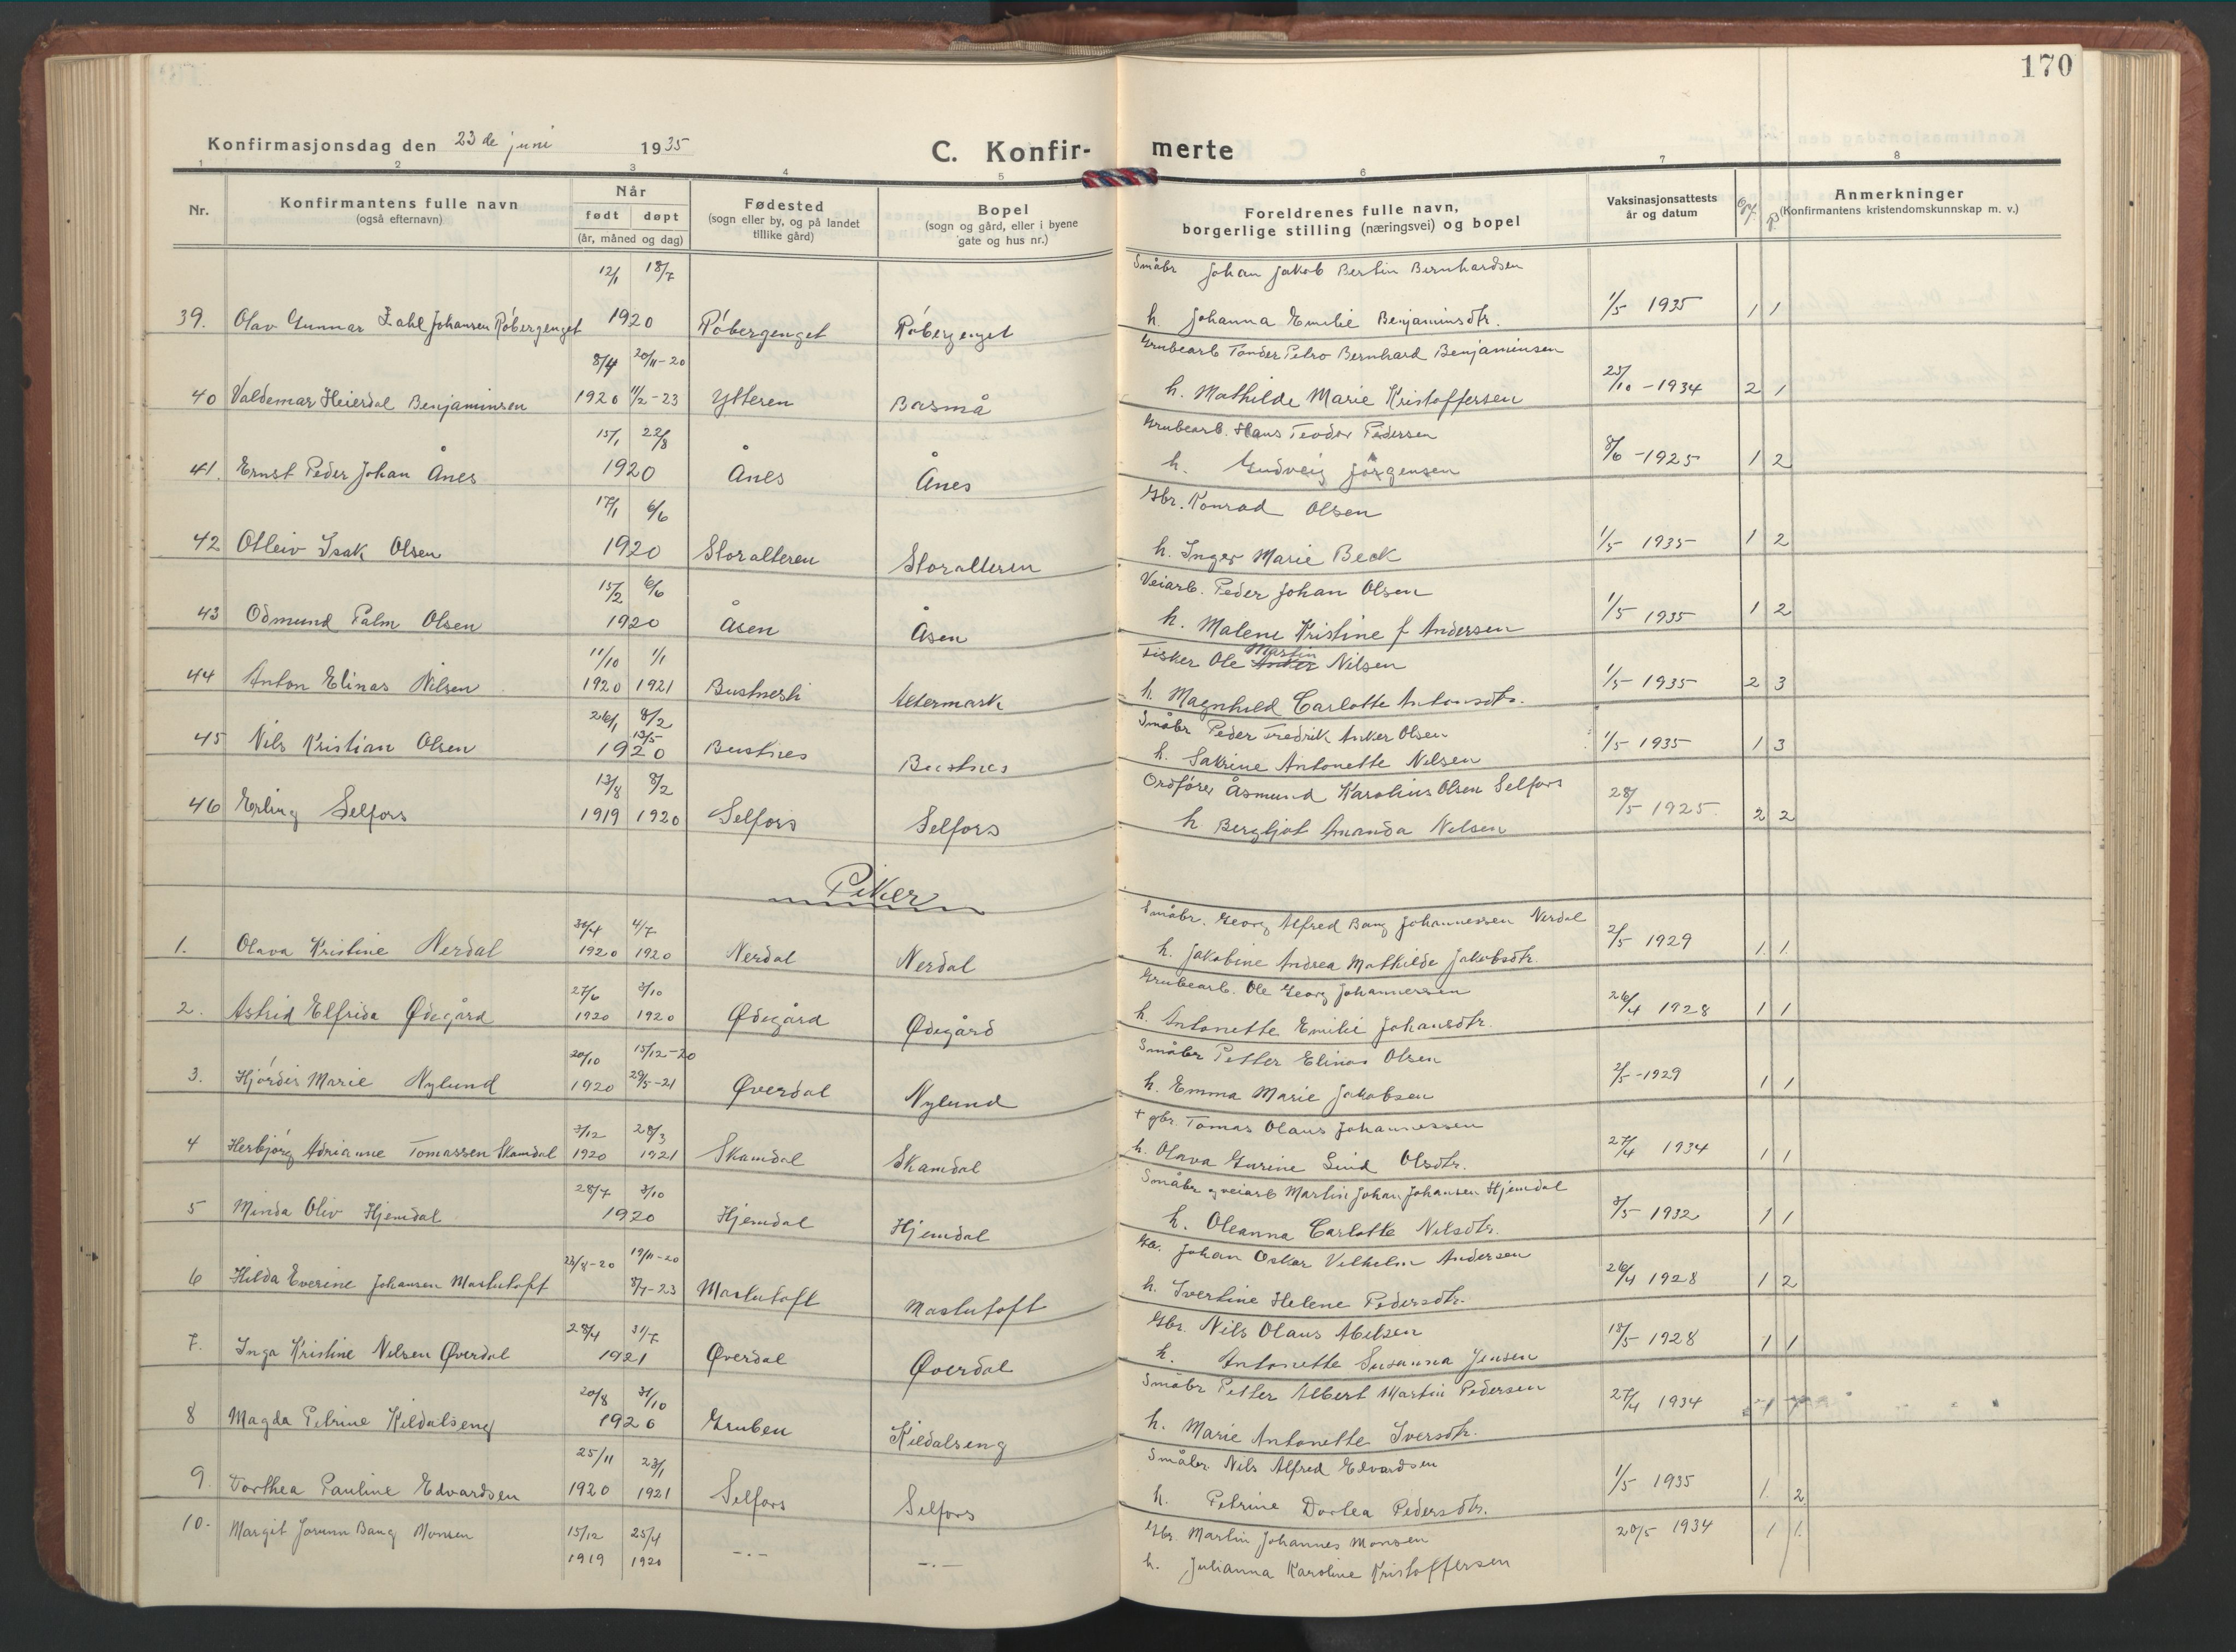 170
Konfirmasjonsdag den 23 de juni 1935
C. Konfir-merte
1 2 3 4 5 6 7 8
Nr.
Konfirmantens fulle navn
(også efternavn)
Når
født døpt
(år, måned og dag)
Fødested
(sogn eller by, og på landet
tillike gård)
Bopel
(sogn og gård, eller i byene
gate og hus nr.)
Foreldrenes fulle navn,
borgerlige stilling (næringsvei) og bopel
Vaksinasjonsattests
år og datum
Anmerkninger
(Konfirmantens kristendomskunnskap m. v.)
12/1 18/7 Småbr Johan Jakob Bertin Bernhardsen
39. Olav Gunnar Zahl Johansen Røbergenget 1920 Røbergenget Røbergenget h. Johanna Emilie Benjaminsdtr. 1/5 1935 1 1
8/4 20/11-20 Grubearb Tønder Petro Bernhard Benjaminsen
40 Valdemar Heierdal Benjaminsen 1920 11/2-23 Ytteren Båsmå h. Mathilde Marie Kristoffersen 25/10-1934 2 1
15/1 22/8 Grubearb. Hans Teodor Pedersen
41. Ernst Peder Johan Ånes 1920 Ånes Ånes h. Gudveig Jørgensen 8/6-1925 1 2
17/1 6/6 Gbr. Konrad Olsen
42 Otleiv Isak Olsen 1920 Storalteren Storalteren h. Inger Marie Beck 1/5 1935 1 2
15/2 6/6 Veiarb. Peder Johan Olsen
43 Odmund Palm Olsen 1920 Åsen Åsen h. Malene Kristine f Andersen 1/5 1935 1 2
11/10 1/1 Fisker Ole Anker Martin Nilsen
44 Anton Elinas Nilsen 1920 1921 Bustnesli Altermark h. Magnhild Carlotte Antonsdtr. 1/5-1935 2 3
26/1 8/2 13/5 Småbr Peder Fredrik Anker Olsen
45 Nils Kristian Olsen 1920 Bustnes Bustnes h. Sakrine Antonette Nilsen 1/5-1935 1 3
13/8 8/2 Ordfører Åsmund Karolius Olsen Selfors
46 Erling Selfors 1919 1920 Selfors Selfors h Bergljot Amanda Nilsen 28/5 1925 2 2
Piker
4/7 Småbr. Georg Alfred Bang Johannessen Nerdal
1. Olava Kristine Nerdal 1920 1920 Nerdal Nerdal h. Jakobine Andrea Mathilde Jakobsdtr. 2/5 1929 1. 1.
27/6 3/10 Grubearb. Ole Georg Johannessen
2. Astrid Elfrida Ødegård 1920 1920 Ødegård Ødegård h. Antonette Emilie Johansdtr. 26/4 1928 1 1
20/10 15/12-20 Småbr Petter Elinas Olsen
3. Hjørdis Marie Nylund 1920 29/5-21 Øverdal Nylund h. Emma Marie Jakobsen 2/5-1929 1 1
3/12 28/3 + gbr. Tomas Olaus Johannessen
4 Herbjørg Adrianne Tomassen Skamdal 1920 1921 Skamdal Skamdal h. Olava Gurine Lind Olsdtr. 27/4 1934 1 1
28/7 3/10 Småbr og veiarb Martin Johan Johansen Hjemdal
5 Minda Oliv Hjemdal 1920 Hjemdal Hjemdal h. Oleanna Carlotte Nilsdtr. 3/5 1932 1 1
19/11-20 Johan Oskar Vilhelm Andersen
6 Hilda Everine Johansen Mastutoft 8/7-23 Mastutoft Mastutoft h. Ivertine Helene Pedersdtr. 26/4 1928 1 2
28/4 31/7 Gbr. Nils Olaus Abelsen
7. Inga Kristine Nilsen Øverdal 1921 Øverdal Øverdal h. Antonette Susanna Jensen 18/5 1928 1 1
20/8 31/10 Småbr Petter Albert Martin Pedersen
8 Magda Petrine Kildalseng 1920 Gruben Kildalseng h. Marie Antonette Iversdtr. 27/4 1934 1
25/11 23/1 Småbr Nils Alfred Edvardsen
9. Torthea Pauline Edvardsen 1920 1921 Selfors Selfors h. Petrine Dortea Pedersdtr. 1/5 1935 1. 2.
10. Margit Jorunn Bang Monsen 15/12 25/4 Gbr. Martin Johannes Monsen 20/5 1934 1 1.
1919 1920 -.- -.- h. Julianna Karoline Kristoffersen